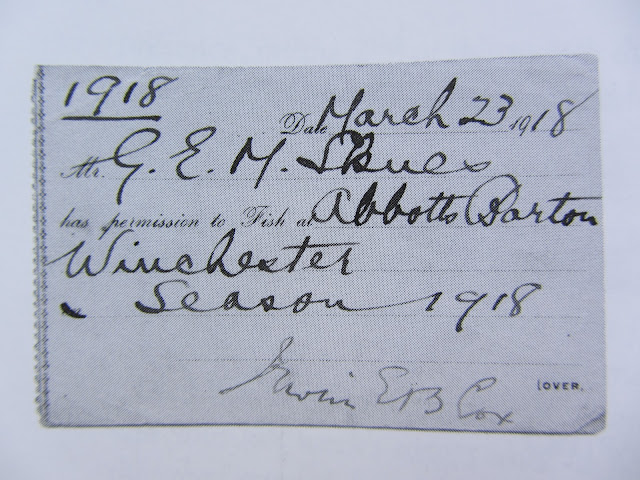 1918
Date March 23 1918
Mr. G. E. M. Skues
has permission to Fish at Abbotts Barton
Winchester
Season 1918
Irwin E B Cox
(OVER.